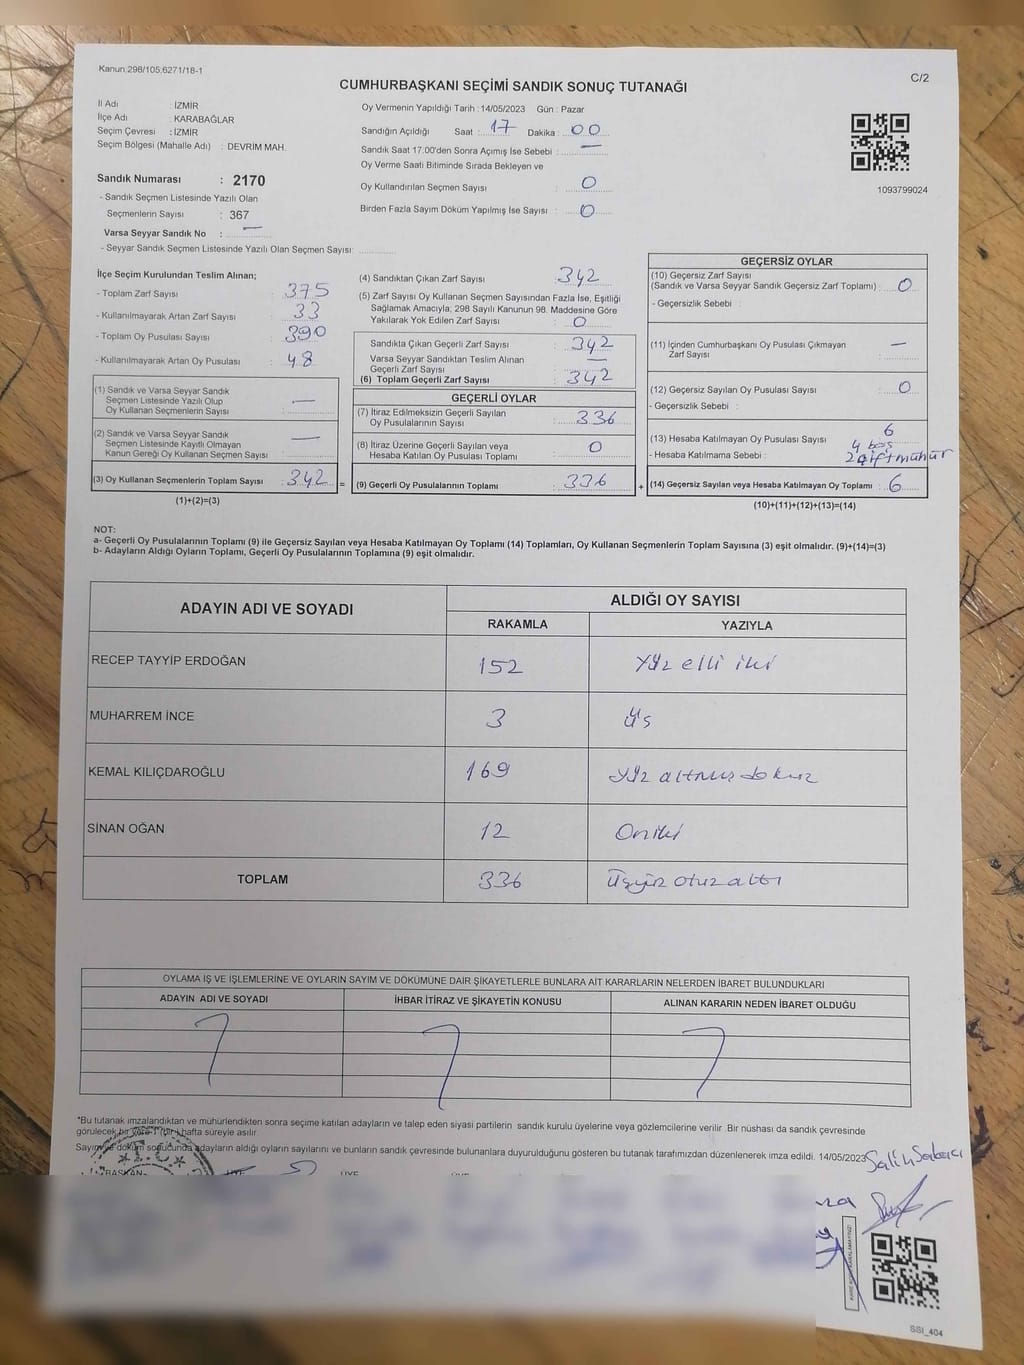 Kanun 298/105,6271/18-1
C/2
CUMHURBAŞKANI SEÇİMİ SANDIK SONUÇ TUTANAĞI
İl Adı : İZMİR
İlçe Adı : KARABAĞLAR
Seçim Çevresi : İZMİR
Seçim Bölgesi (Mahalle Adı) : DEVRİM MAH.
Sandık Numarası : 2170
- Sandık Seçmen Listesinde Yazılı Olan
Seçmenlerin Sayısı : 367
Varsa Seyyar Sandık No : —
- Seyyar Sandık Seçmen Listesinde Yazılı Olan Seçmen Sayısı:
Oy Vermenin Yapıldığı Tarih : 14/05/2023 Gün : Pazar
Sandığın Açıldığı Saat : 17 Dakika : 00
Sandık Saat 17.00'den Sonra Açımış İse Sebebi : —
Oy Verme Saati Bitiminde Sırada Bekleyen ve
Oy Kullandırılan Seçmen Sayısı : 0
Birden Fazla Sayım Döküm Yapılmış İse Sayısı : 0
1093799024
İlçe Seçim Kurulundan Teslim Alınan;
- Toplam Zarf Sayısı : 375
- Kullanılmayarak Artan Zarf Sayısı : 33
- Toplam Oy Pusulası Sayısı : 390
- Kullanılmayarak Artan Oy Pusulası : 48
(1) Sandık ve Varsa Seyyar Sandık
Seçmen Listesinde Yazılı Olup
Oy Kullanan Seçmenlerin Sayısı : —
(2) Sandık ve Varsa Seyyar Sandık
Seçmen Listesinde Kayıtlı Olmayan
Kanun Gereği Oy Kullanan Seçmen Sayısı : —
(3) Oy Kullanan Seçmenlerin Toplam Sayısı : 342 =
(1)+(2)=(3)
(4) Sandıktan Çıkan Zarf Sayısı : 342
(5) Zarf Sayısı Oy Kullanan Seçmen Sayısından Fazla İse, Eşitliği
Sağlamak Amacıyla; 298 Sayılı Kanunun 98. Maddesine Göre
Yakılarak Yok Edilen Zarf Sayısı : 0
Sandıkta Çıkan Geçerli Zarf Sayısı : 342
Varsa Seyyar Sandıktan Teslim Alınan
Geçerli Zarf Sayısı : —
(6) Toplam Geçerli Zarf Sayısı : 342
GEÇERLİ OYLAR
(7) İtiraz Edilmeksizin Geçerli Sayılan
Oy Pusulalarının Sayısı : 336
(8) İtiraz Üzerine Geçerli Sayılan veya
Hesaba Katılan Oy Pusulası Toplamı : 0
(9) Geçerli Oy Pusulalarının Toplamı : 336 +
GEÇERSİZ OYLAR
(10) Geçersiz Zarf Sayısı
(Sandık ve Varsa Seyyar Sandık Geçersiz Zarf Toplamı) : 0
- Geçersizlik Sebebi :
(11) İçinden Cumhurbaşkanı Oy Pusulası Çıkmayan
Zarf Sayısı : —
(12) Geçersiz Sayılan Oy Pusulası Sayısı : 0
- Geçersizlik Sebebi :
(13) Hesaba Katılmayan Oy Pusulası Sayısı : 6
- Hesaba Katılmama Sebebi : 4 boş
2 çift mühür
(14) Geçersiz Sayılan veya Hesaba Katılmayan Oy Toplamı : 6
(10)+(11)+(12)+(13)=(14)
NOT:
a- Geçerli Oy Pusulalarının Toplamı (9) ile Geçersiz Sayılan veya Hesaba Katılmayan Oy Toplamı (14) Toplamları, Oy Kullanan Seçmenlerin Toplam Sayısına (3) eşit olmalıdır. (9)+(14)=(3)
b- Adayların Aldığı Oyların Toplamı, Geçerli Oy Pusulalarının Toplamına (9) eşit olmalıdır.
ADAYIN ADI VE SOYADI
ALDIĞI OY SAYISI
RAKAMLA YAZIYLA
RECEP TAYYİP ERDOĞAN 152 Yüz elli iki
MUHARREM İNCE 3 üş
KEMAL KILIÇDAROĞLU 169 yüz altmış dokuz
SİNAN OĞAN 12 Oniki
TOPLAM 336 Üşyüz otuz altı
OYLAMA İŞ VE İŞLEMLERİNE VE OYLARIN SAYIM VE DÖKÜMÜNE DAİR ŞİKAYETLERLE BUNLARA AİT KARARLARIN NELERDEN İBARET BULUNDUKLARI
ADAYIN ADI VE SOYADI İHBAR İTİRAZ VE ŞİKAYETİN KONUSU ALINAN KARARIN NEDEN İBARET OLDUĞU
*Bu tutanak imzalandıktan ve mühürlendikten sonra seçime katılan adayların ve talep eden siyasi partilerin sandık kurulu üyelerine veya gözlemcilerine verilir. Bir nüshası da sandık çevresinde
görülecek bir yere 1 (bir) hafta süreyle asılır.
Sayım ve döküm sonucunda adayların aldığı oyların sayılarını ve bunların sandık çevresinde bulunanlara duyurulduğunu gösteren bu tutanak tarafımızdan düzenlenerek imza edildi. 14/05/2023
T.C.
BAŞKAN ÜYE ÜYE ÜYE
SSI_404